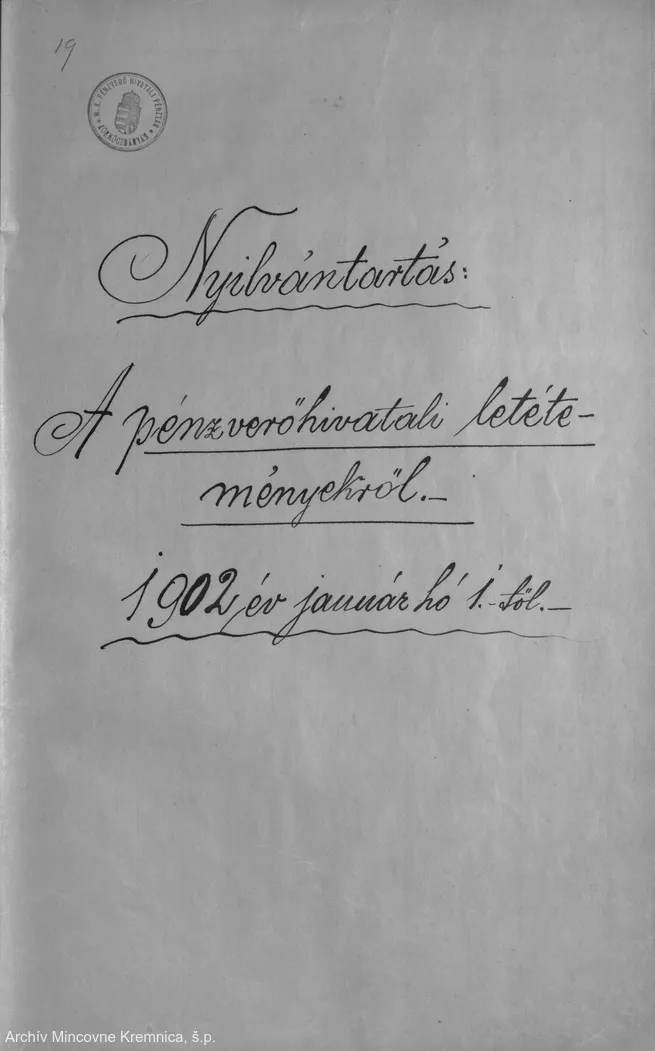 19
M. K. PÉNZVERŐ HIVATALI PÉNZTÁR
KÖRMÖCZBÁNYÁN
Nyilvántartás:
A pénzverőhivatali letéte-
ményekről.-
1902 év január hó 1.-től.-
Archív Mincovne Kremnica, š.p.